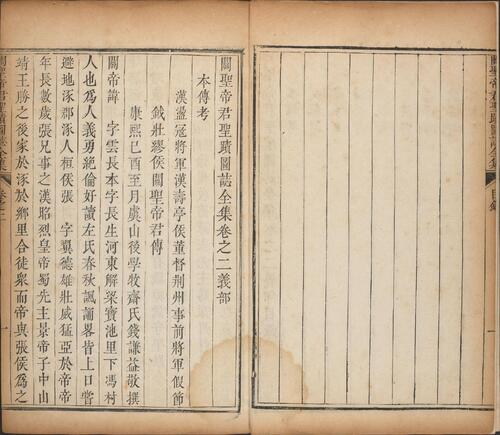 關聖帝君聖蹟圖誌全集 目錄 一
關聖帝君聖蹟圖誌全集卷之二義部
本傳考
漢盪寇將軍漢壽亭侯董督荊州事前將軍假節
鉞壯繆侯關聖帝君傳
康熙己酉至月虞山後學牧齋氏錢謙益敬撰
關帝諱 字雲長本字長生河東解梁寶池里下馮村
人也爲人義勇絕倫好讀左氏春秋諷誦畧皆上口嘗
避地涿郡涿人桓侯張 字翼德雄壯威猛亞於帝帝
年長數歲張兄事之漢昭烈皇帝蜀先主景帝子中山
靖王勝之後家於涿於鄉里合徒衆而帝與張侯爲之
關聖帝君聖蹟圖誌全集 卷二 一